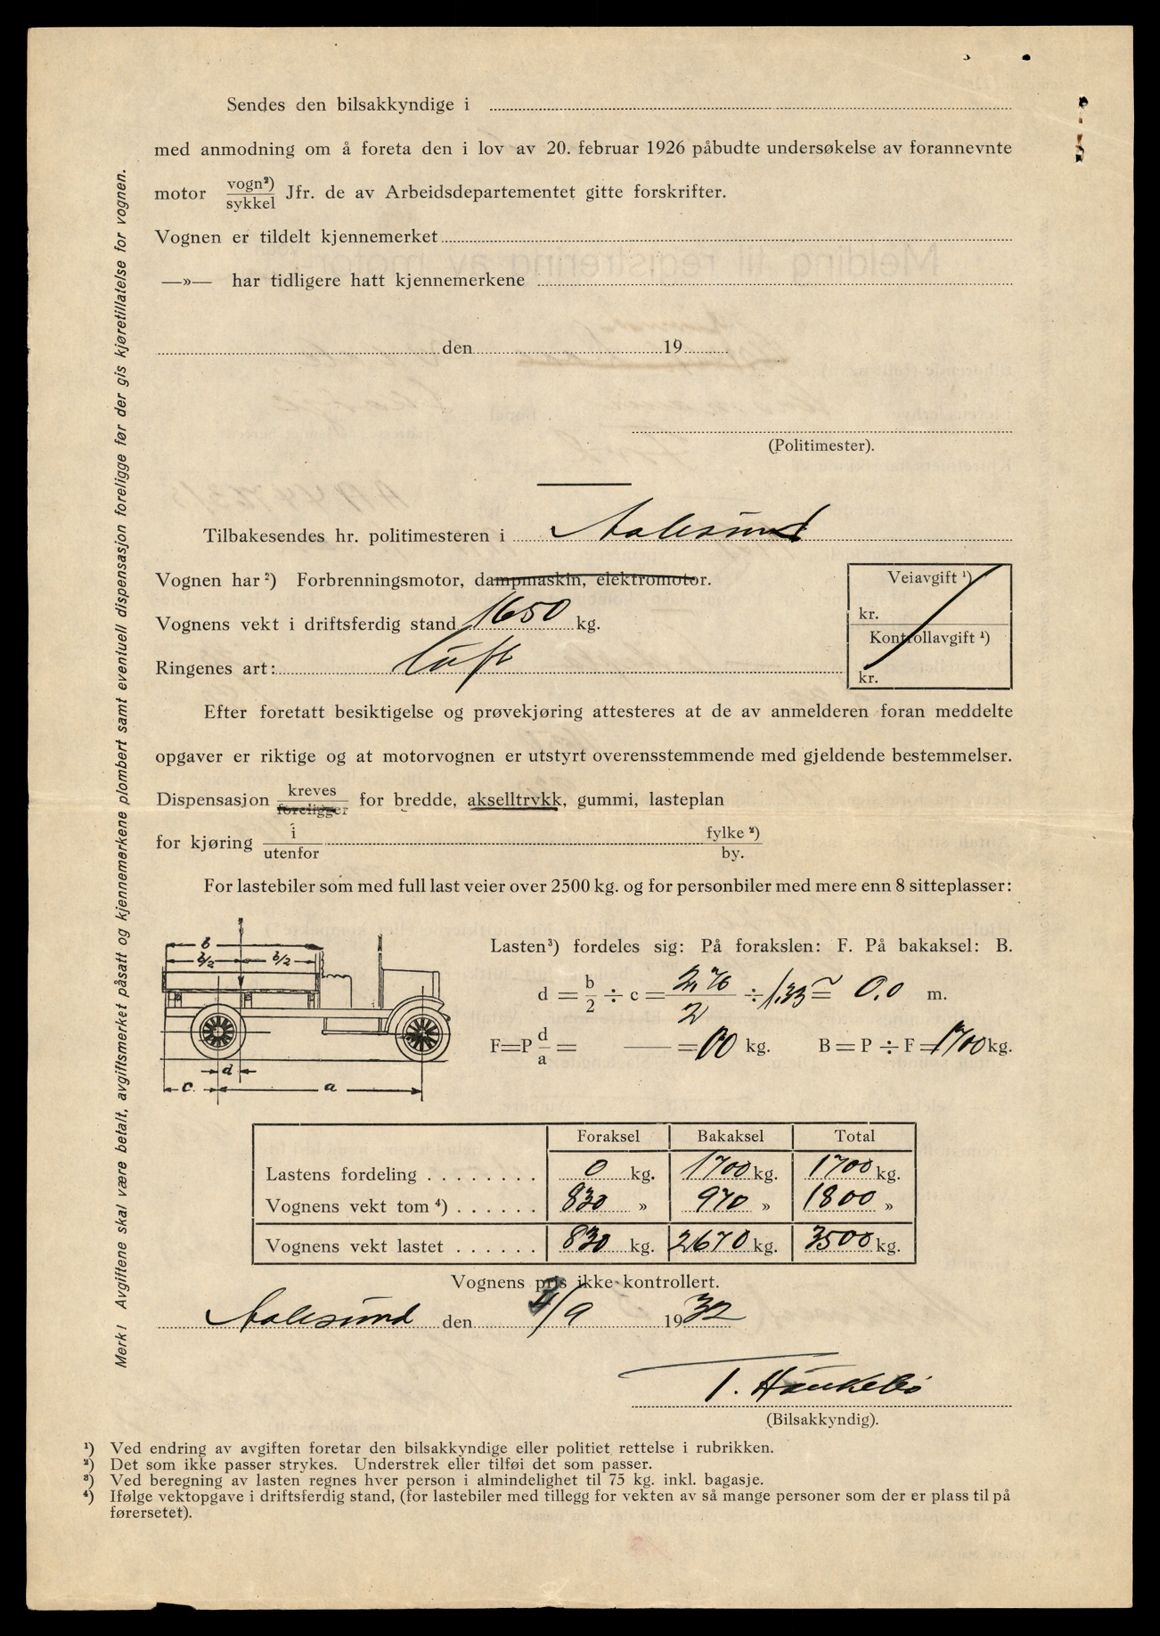 Sendes den bilsakkyndige i
med anmodning om å foreta den i lov av 20. februar 1926 påbudte undersøkelse av forannevnte
motor vogn²) / sykkel Jfr. de av Arbeidsdepartementet gitte forskrifter.
Vognen er tildelt kjennemerket
—»— har tidligere hatt kjennemerkene
den 19
(Politimester).
Tilbakesendes hr. politimesteren i Aalesund
Vognen har²) Forbrenningsmotor, dampmaskin, elektromotor.
Vognens vekt i driftsferdig stand 1650 kg.
Ringenes art: luft
Veiavgift ¹)
kr.
Kontrollavgift ¹)
kr.
Efter foretatt besiktigelse og prøvekjøring attesteres at de av anmelderen foran meddelte
opgaver er riktige og at motorvognen er utstyrt overensstemmende med gjeldende bestemmelser.
Dispensasjon kreves / foreligger for bredde, akseltrykk, gummi, lasteplan
for kjøring i / utenfor fylke ²) / by.
For lastebiler som med full last veier over 2500 kg. og for personbiler med mere enn 8 sitteplasser:
b
b/2 b/2
d
c a
Lasten³) fordeles sig: På forakslen: F. På bakaksel: B.
d = b/2 ÷ c = 2,76/2 ÷ 1,33 = 0,0 m.
F=P d/a = — = 00 kg. B = P ÷ F = 1700 kg.
Foraksel Bakaksel Total
Lastens fordeling . . . . . . . . 0 kg. 1700 kg. 1700 kg.
Vognens vekt tom ⁴) . . . . . . 830 » 970 » 1800 »
Vognens vekt lastet . . . . . . 830 kg. 2670 kg. 3500 kg.
Vognens pris ikke kontrollert.
Aalesund den /9 1932
T. Haukebø
(Bilsakkyndig).
¹) Ved endring av avgiften foretar den bilsakkyndige eller politiet rettelse i rubrikken.
²) Det som ikke passer strykes. Understrek eller tilføi det som passer.
³) Ved beregning av lasten regnes hver person i almindelighet til 75 kg. inkl. bagasje.
⁴) Ifølge vektopgave i driftsferdig stand, (for lastebiler med tillegg for vekten av så mange personer som der er plass til på
førersetet).
Merk! Avgiftene skal være betalt, avgiftsmerket påsatt og kjennemerkene plombert samt eventuell dispensasjon foreligge før der gis kjøretillatelse for vognen.